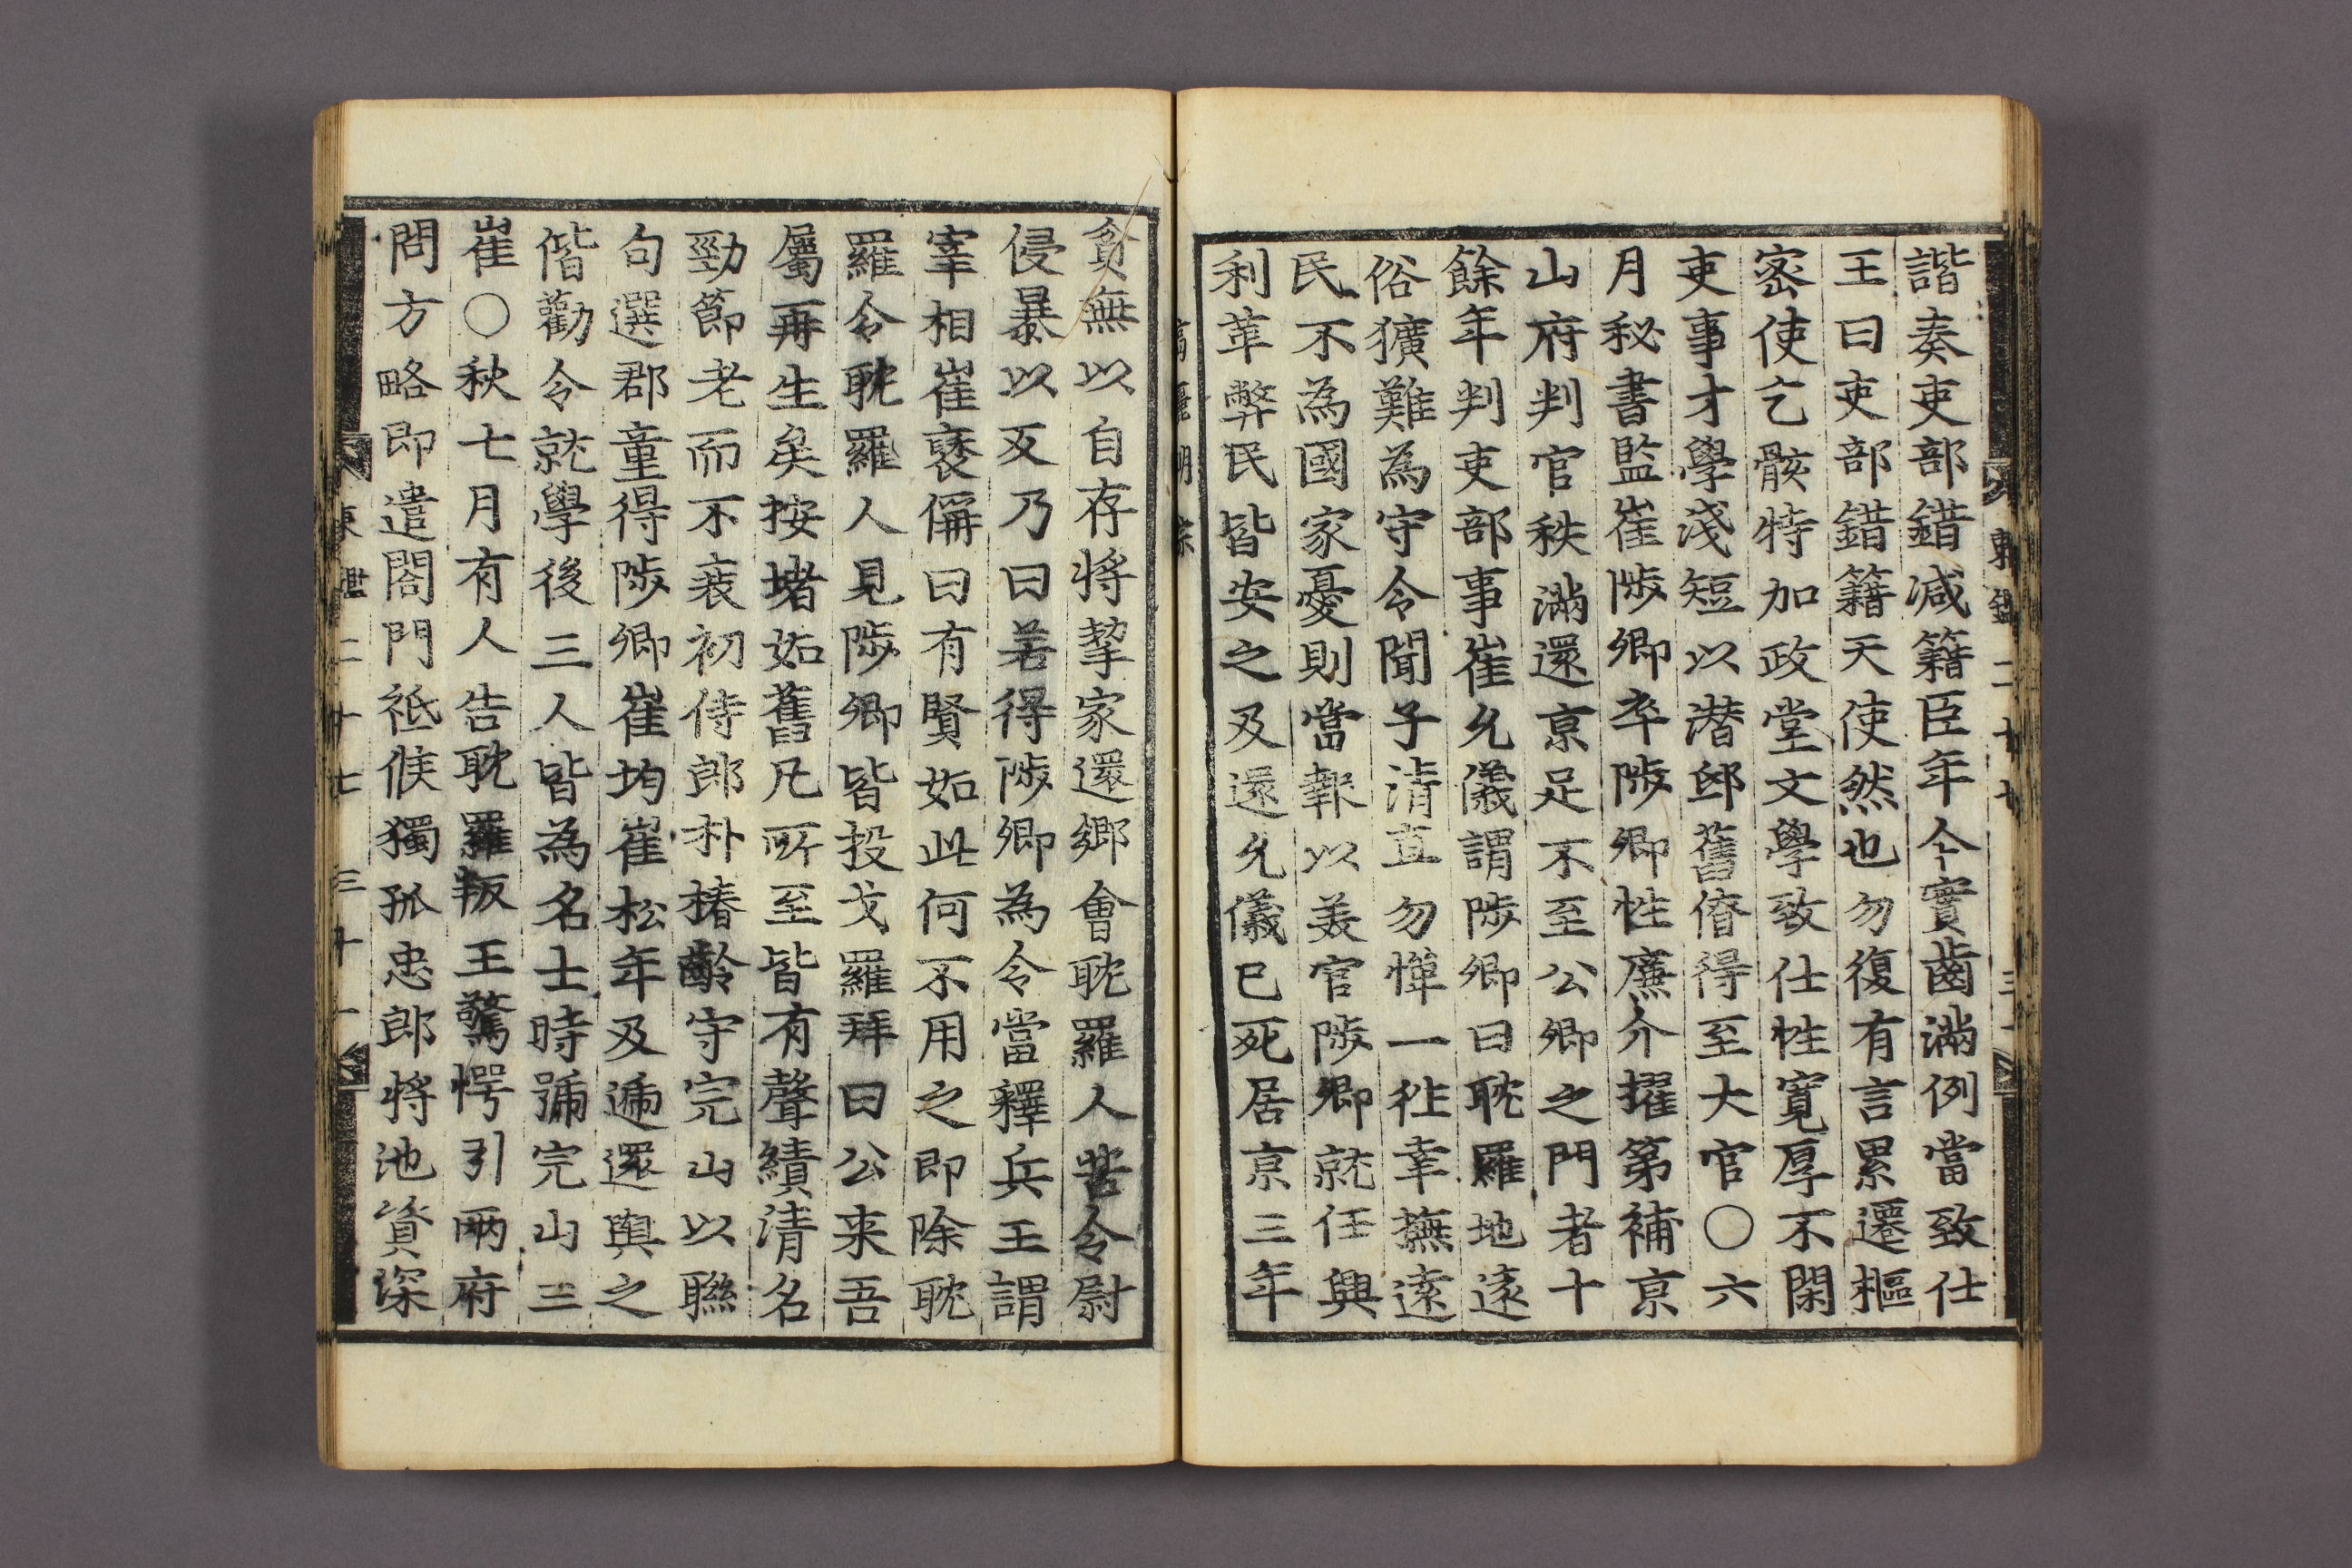 諧奏吏部錯減籍臣年今實齒滿例當致仕
王曰吏部錯籍天使然也勿復有言累遷樞
密使乞骸特加政堂文學致仕性寬厚不閑
吏事才學淺短以潛邸舊僚得至大官○六
月秘書監崔陟卿卒陟卿性廉介擢第補京
山府判官秩滿還京足不至公卿之門者十
餘年判吏部事崔允儀謂陟卿曰耽羅地遠
俗獷難為守令聞子清直勿憚一徃幸撫遠
民不為國家憂則當報以美官陟卿就任興
利革弊民皆安之及還允儀已死居京三年
貧無以自存將挈家還鄉會耽羅人苦令尉
侵暴以叛乃曰若得陟卿為令當釋兵王謂
宰相崔襃偁曰有賢如此何不用之即除耽
羅令耽羅人見陟卿皆投戈羅拜曰公来吾
屬再生矣按堵如舊凡所至皆有聲績清名
勁節老而不衰初侍郎朴椿齡守完山以聯
句選郡童得陟卿崔均崔松年及遞還與之
偕勸令就學後三人皆為名士時號完山三
崔○秋七月有人告耽羅叛王驚愕引兩府
問方略即遣閤門祗候獨孤忠郎將池資深
東鑑二十七
三十一